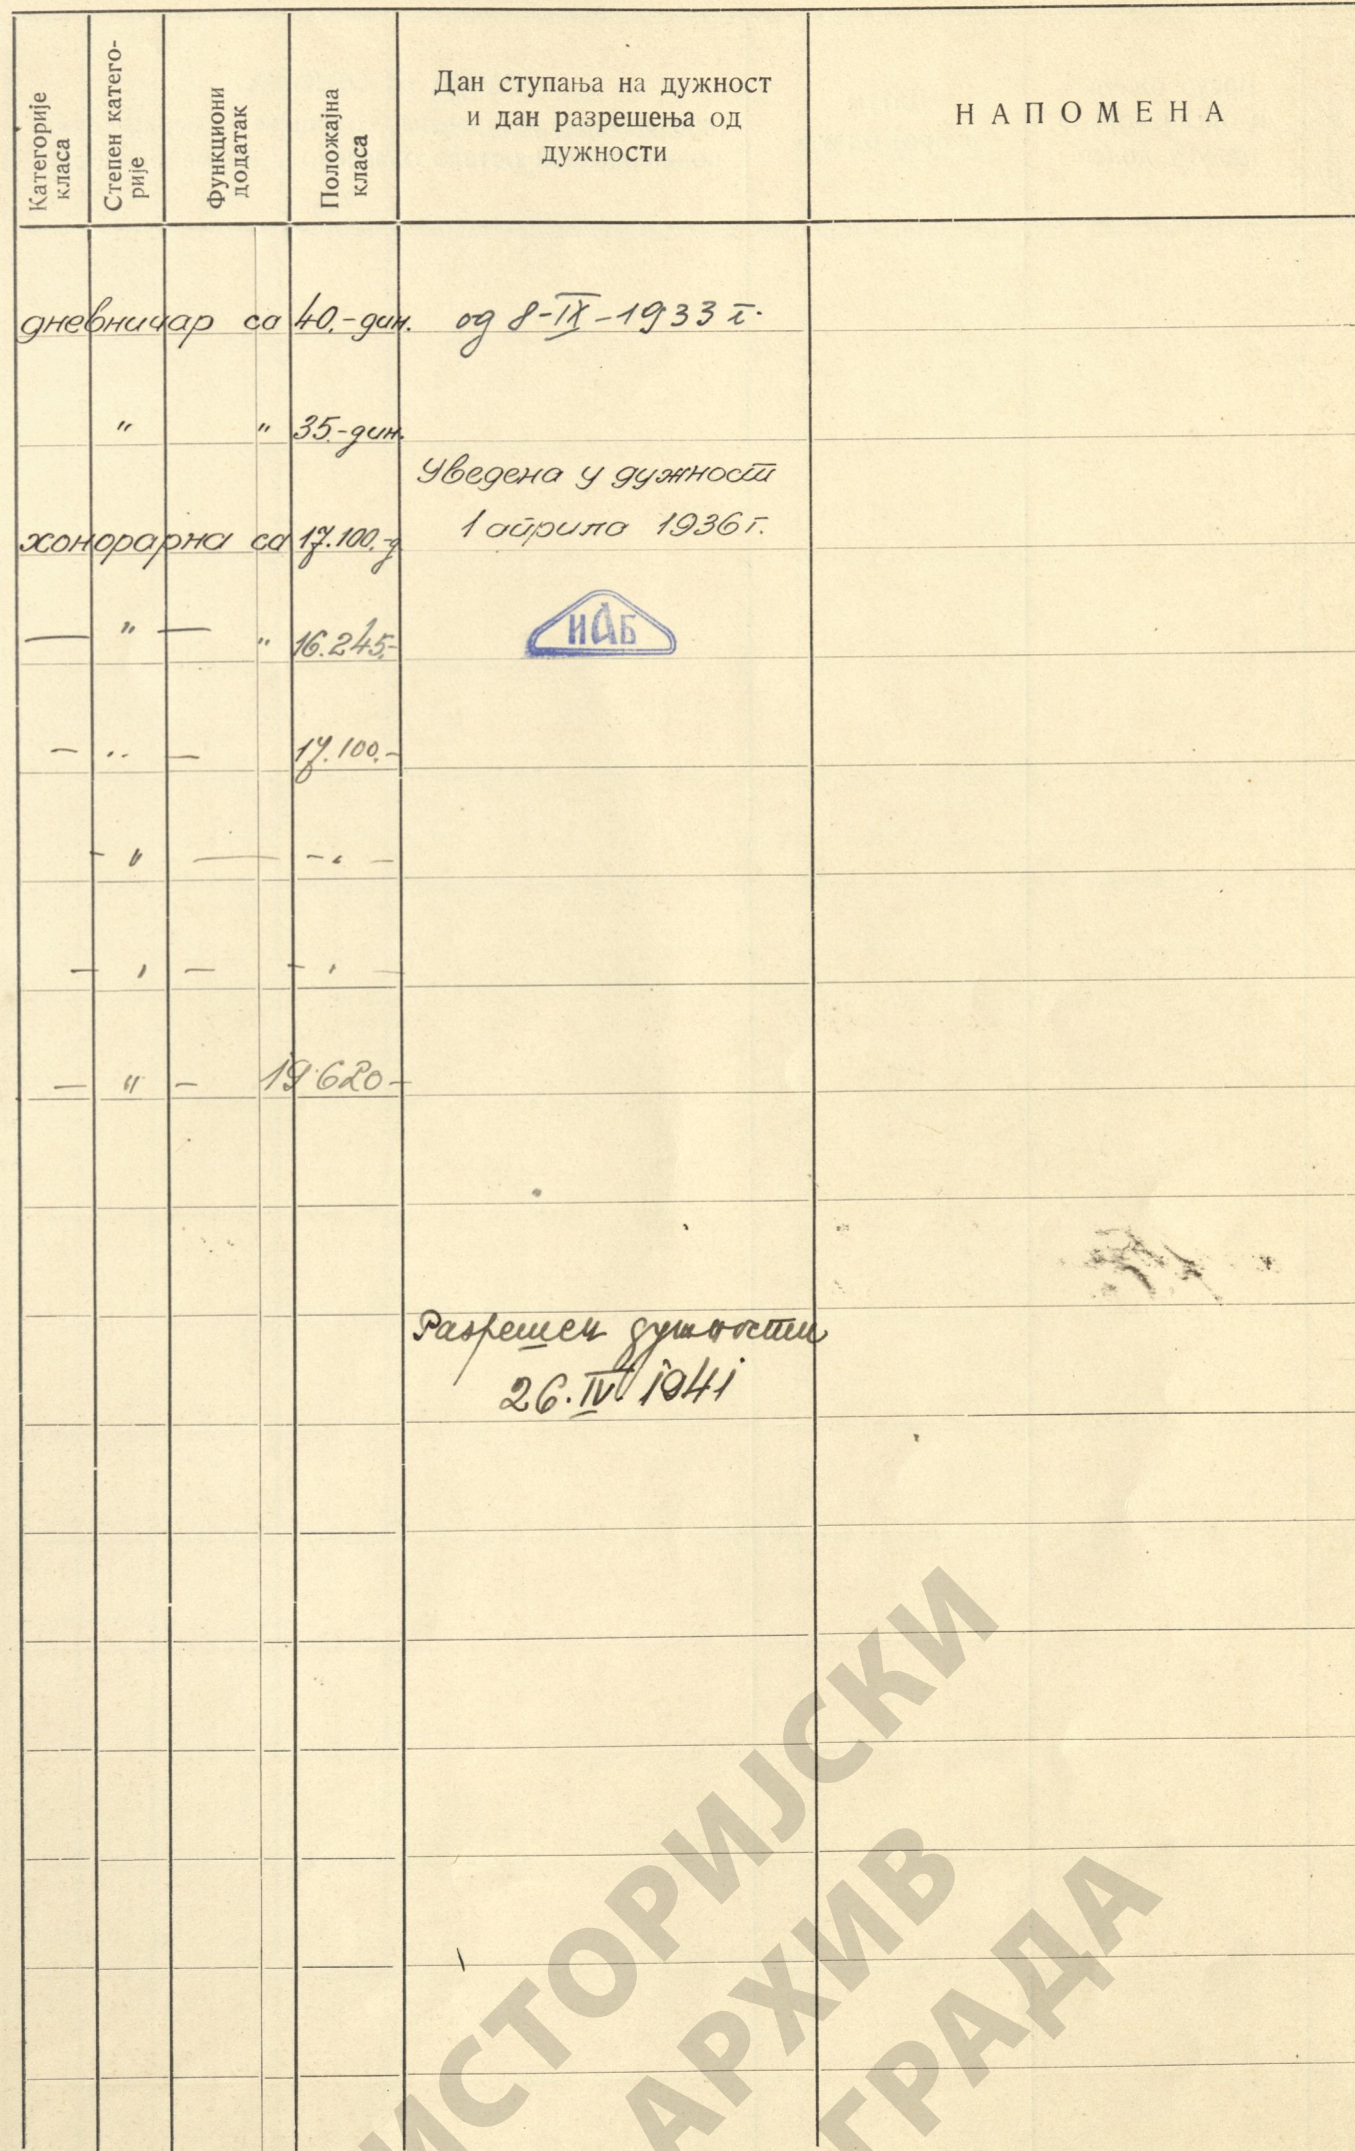 Категорије класа
Степен катего-
рије
Функциони додатак
Положајна класа
Дан ступања на дужност
и дан разрешења од
дужности
НАПОМЕНА
дневничар са 40.-дин. од 8-IX-1933 г.
" " 35.-дин.
Уведена у дужност
хонорарна са 17.100.-д 1 априла 1936 г.
— " — " 16.245.-
ИАБ
— " — 17.100.-
- " — - " —
— " — - " —
— " — 19620-
Разрешен дужности
26.IV.1941
ИСТОРИЈСКИ
АРХИВ
ГРАДА